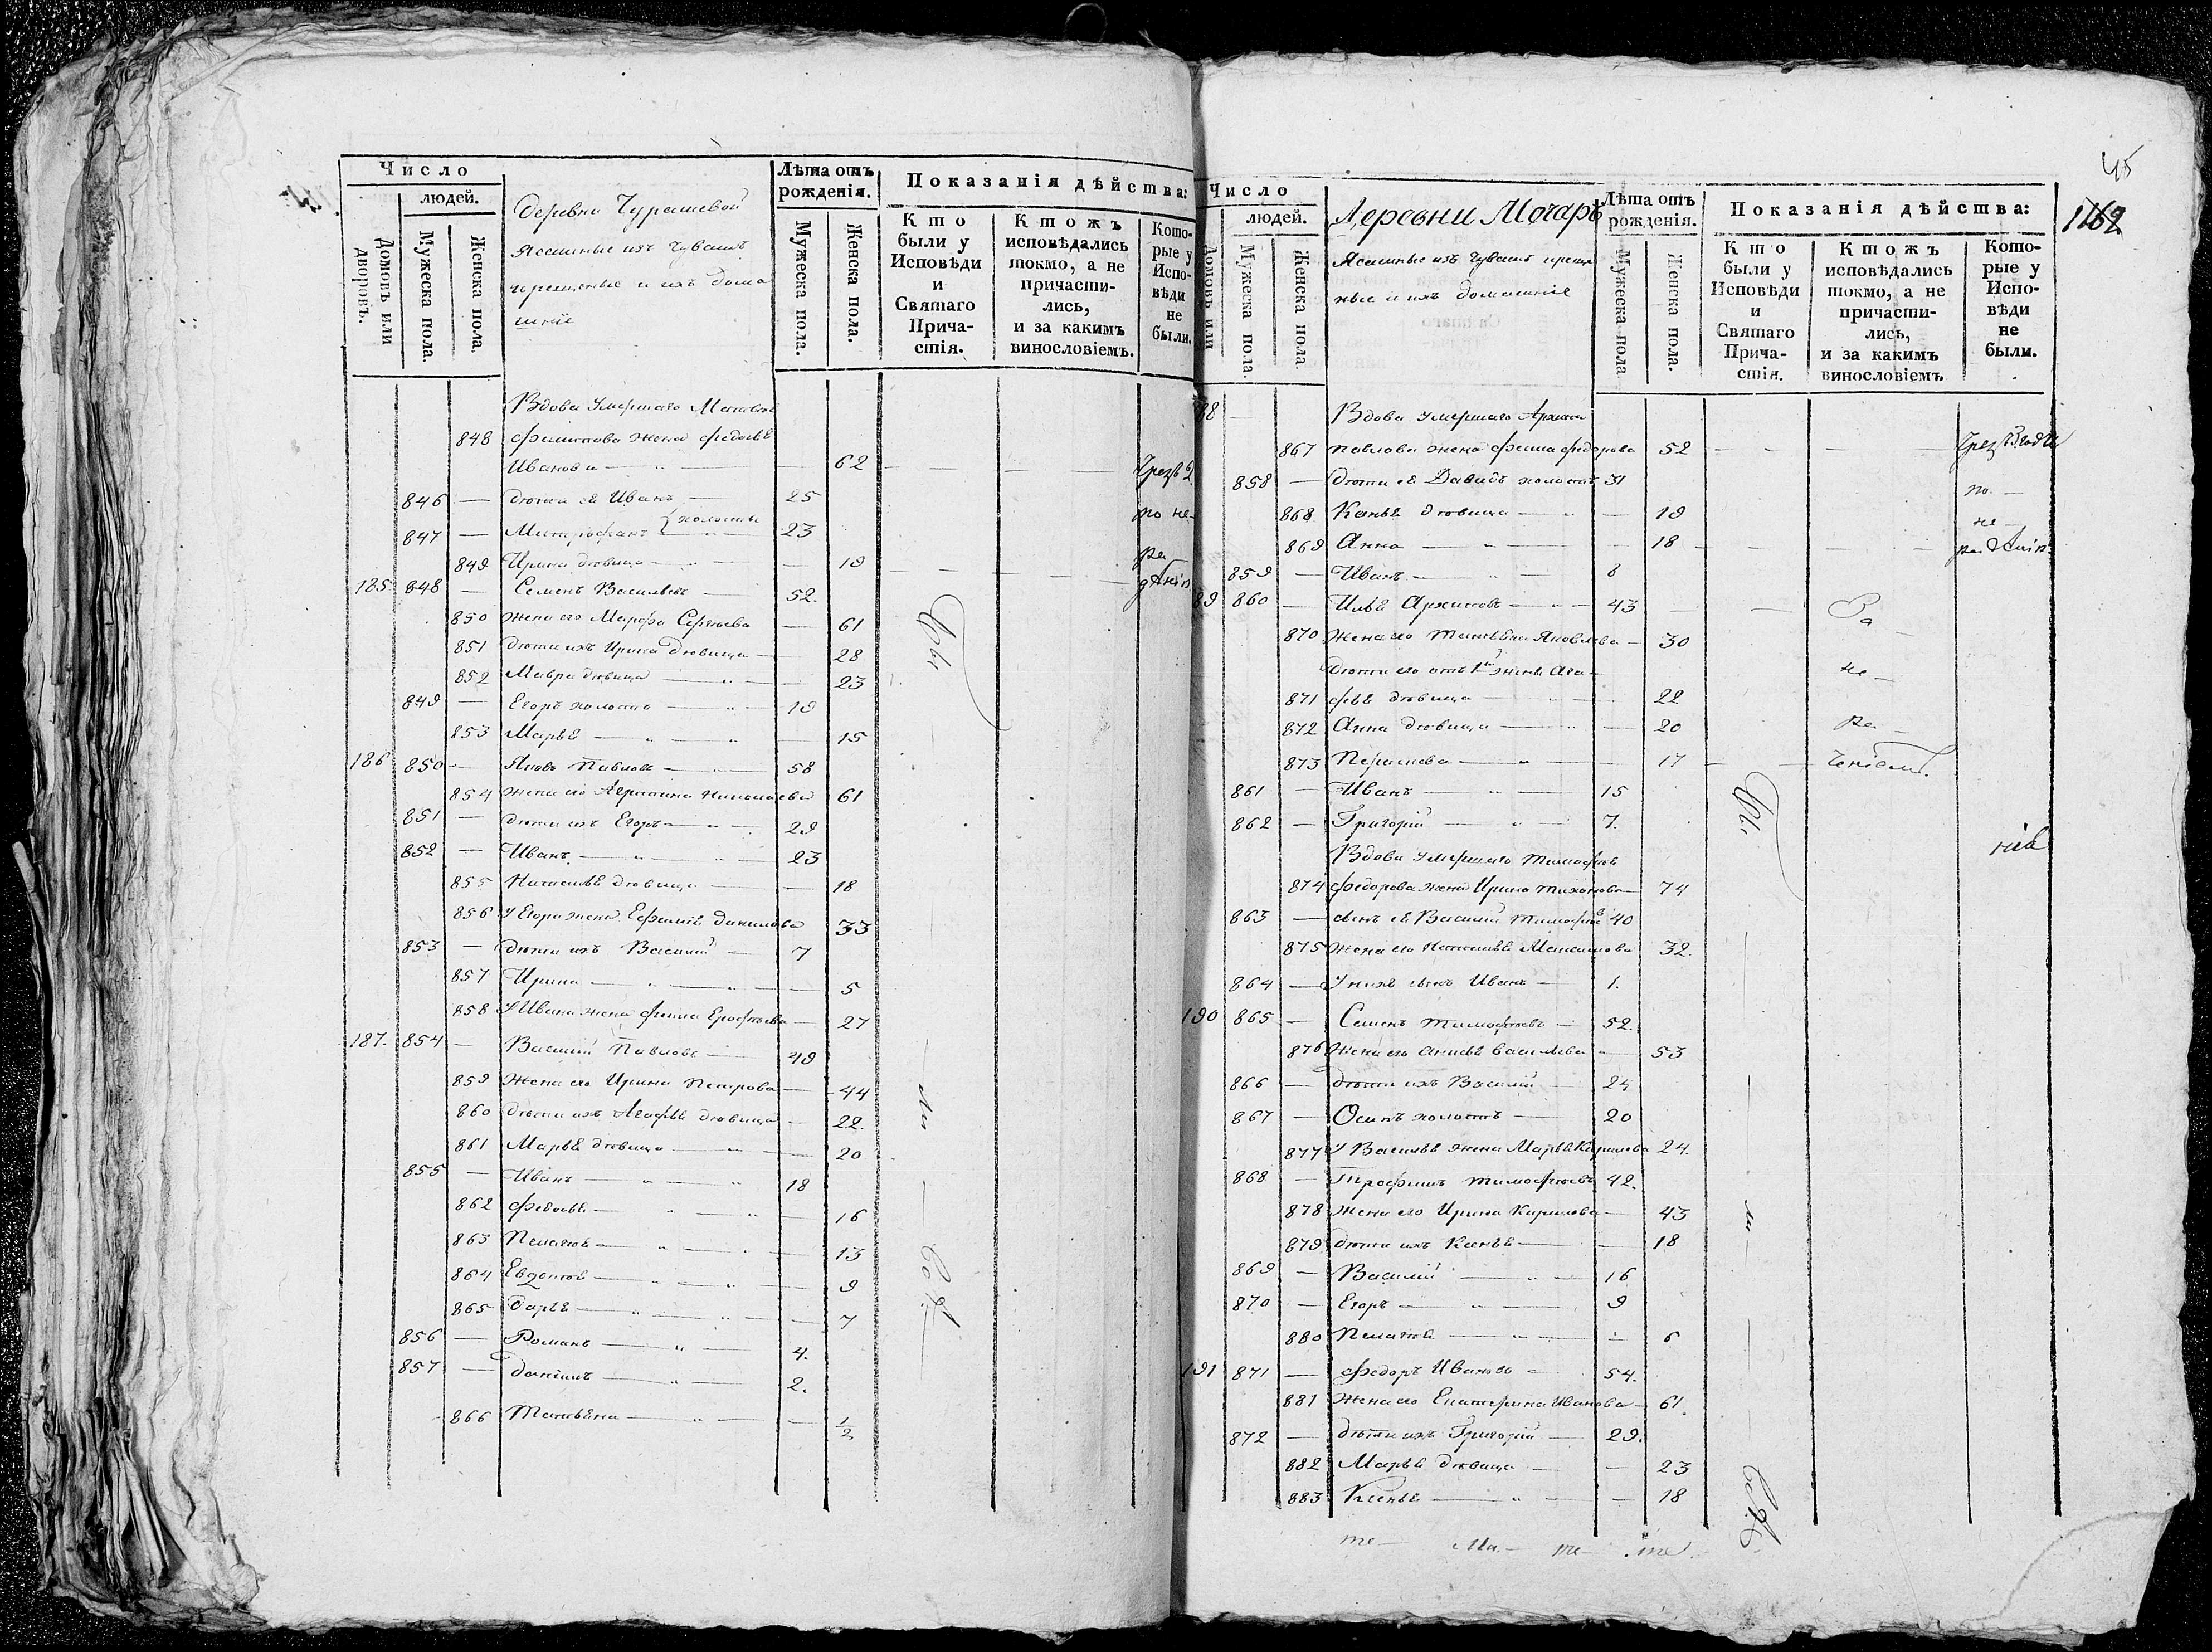 Число
людей.
Домовъ или дворовъ.
Мужеска пола.
Женска пола.
деревни Чурашевой
Ясашные изъ Чувашъ
крещеные и ихъ дома
шніе
Лѣта отъ рожденія.
Мужеска пола.
Женска пола.
Показанія дѣйства:
Кто были у Исповѣди и Святаго Прича-стія.
Ктожъ исповѣдались токмо, а не причасти-лись, и за какимъ винословіемъ.
Кото-рые у Испо-вѣди не были.
Вдова умершаго
848 жена
Иванова 62 Чрезъ
846 — дѣти ея Иванъ — 25
по не-
847 — Митрофанъ холосты 23
ра
849 Ирина дѣвица — 19
дѣнію
185 848 — Семенъ Васильевъ — 52.
850 жена его Марфа Сергѣева — 61
851 дѣти ихъ Ирина дѣвица — 28
852 Мавра дѣвица — 23
849 — Егоръ холостъ — 19
853 Марья — 15
186 850 — Яковъ Павловъ — 58
854 жена его Агрипина Николаева 61
851 — дѣти ихъ Егоръ — 29
852 — Иванъ — 23
855 Наталья дѣвица — 18
856 У Егора жена Ефимія Данилова 33
853 — дѣти ихъ Василій — 7
857 Ирина — 5
858 У Ивана жена Фекла Ерофѣева — 27
187. 854 — Василій Павловъ — 49
859 жена его Ирина Петрова — 44
860 дѣти ихъ Агафья дѣвица — 22.
861 Марья дѣвица — 20
855 — Иванъ — 18
862 Федосья — 16
863 Пелагея — 13
864 — 9
865 Дарья — 7
856 — Романъ — 4.
857 — Даніилъ — 2.
866 Татьяна — 1/2
Бы
ли
45
1162
Число
людей.
Домовъ или
Мужеска пола.
Женска пола.
Деревни Мочаръ
Ясашные изъ Чувашъ креще
ные и ихъ домашніе
Лѣта отъ рожденія.
Мужеска пола
Женска пола.
Показанія дѣйства:
Кто были у Исповѣди и Святаго Прича-стія.
Ктожъ исповѣдались токмо, а не причасти-лись, и за какимъ винословіемъ
Кото-рые у Испо-вѣди не были.
88 — Вдова умершаго Архипа
867 Павлова жена Фекла Федорова 52
858 — дѣти ея Давидъ холостъ 31 по —
868 Ксенья дѣвица — 19 не —
869 Анна — 18 ра дѣнію
859 — Иванъ — 8
89 860 — Илья Архиповъ — 43 За
870 жена его Татьяна Яковлева — 30
дѣти его отъ 1й жены Ага- не —
871 фья дѣвица — 22
872 Анна дѣвица — 20 ра —
873 — 17
861 — Иванъ — 15
862 — Григорій — 7.
Вдова умершаго Тимофѣя
874 Федорова жена Ирина Тихонова — 74
863 — сынъ ея Василій Тимофѣевъ 40
875 жена его Наталья Максимова 32.
864 — У нихъ сынъ Иванъ — 1.
190 865 — Семенъ Тимофѣевъ — 52.
876 жена его Анисья Васильева — 53
866 — дѣти ихъ Василій — 24
867 — Осипъ холостъ — 20
877 У Василья жена Марья Кирилова 24.
868 — Трофимъ Тимофѣевъ 42.
878 жена его Ирина Кирилова — 43
879 дѣти ихъ Ксенья — 18
869 — Василій — 16
870 — Егоръ — 9
880 Пелагея — 6
191 871 — Федоръ Ивановъ — 54.
881 жена его Екатерина Иванова — 61.
872 — дѣти ихъ Григорій — 29.
882 Марья дѣвица — 23
883 Ксенья — 18
Бы
ли